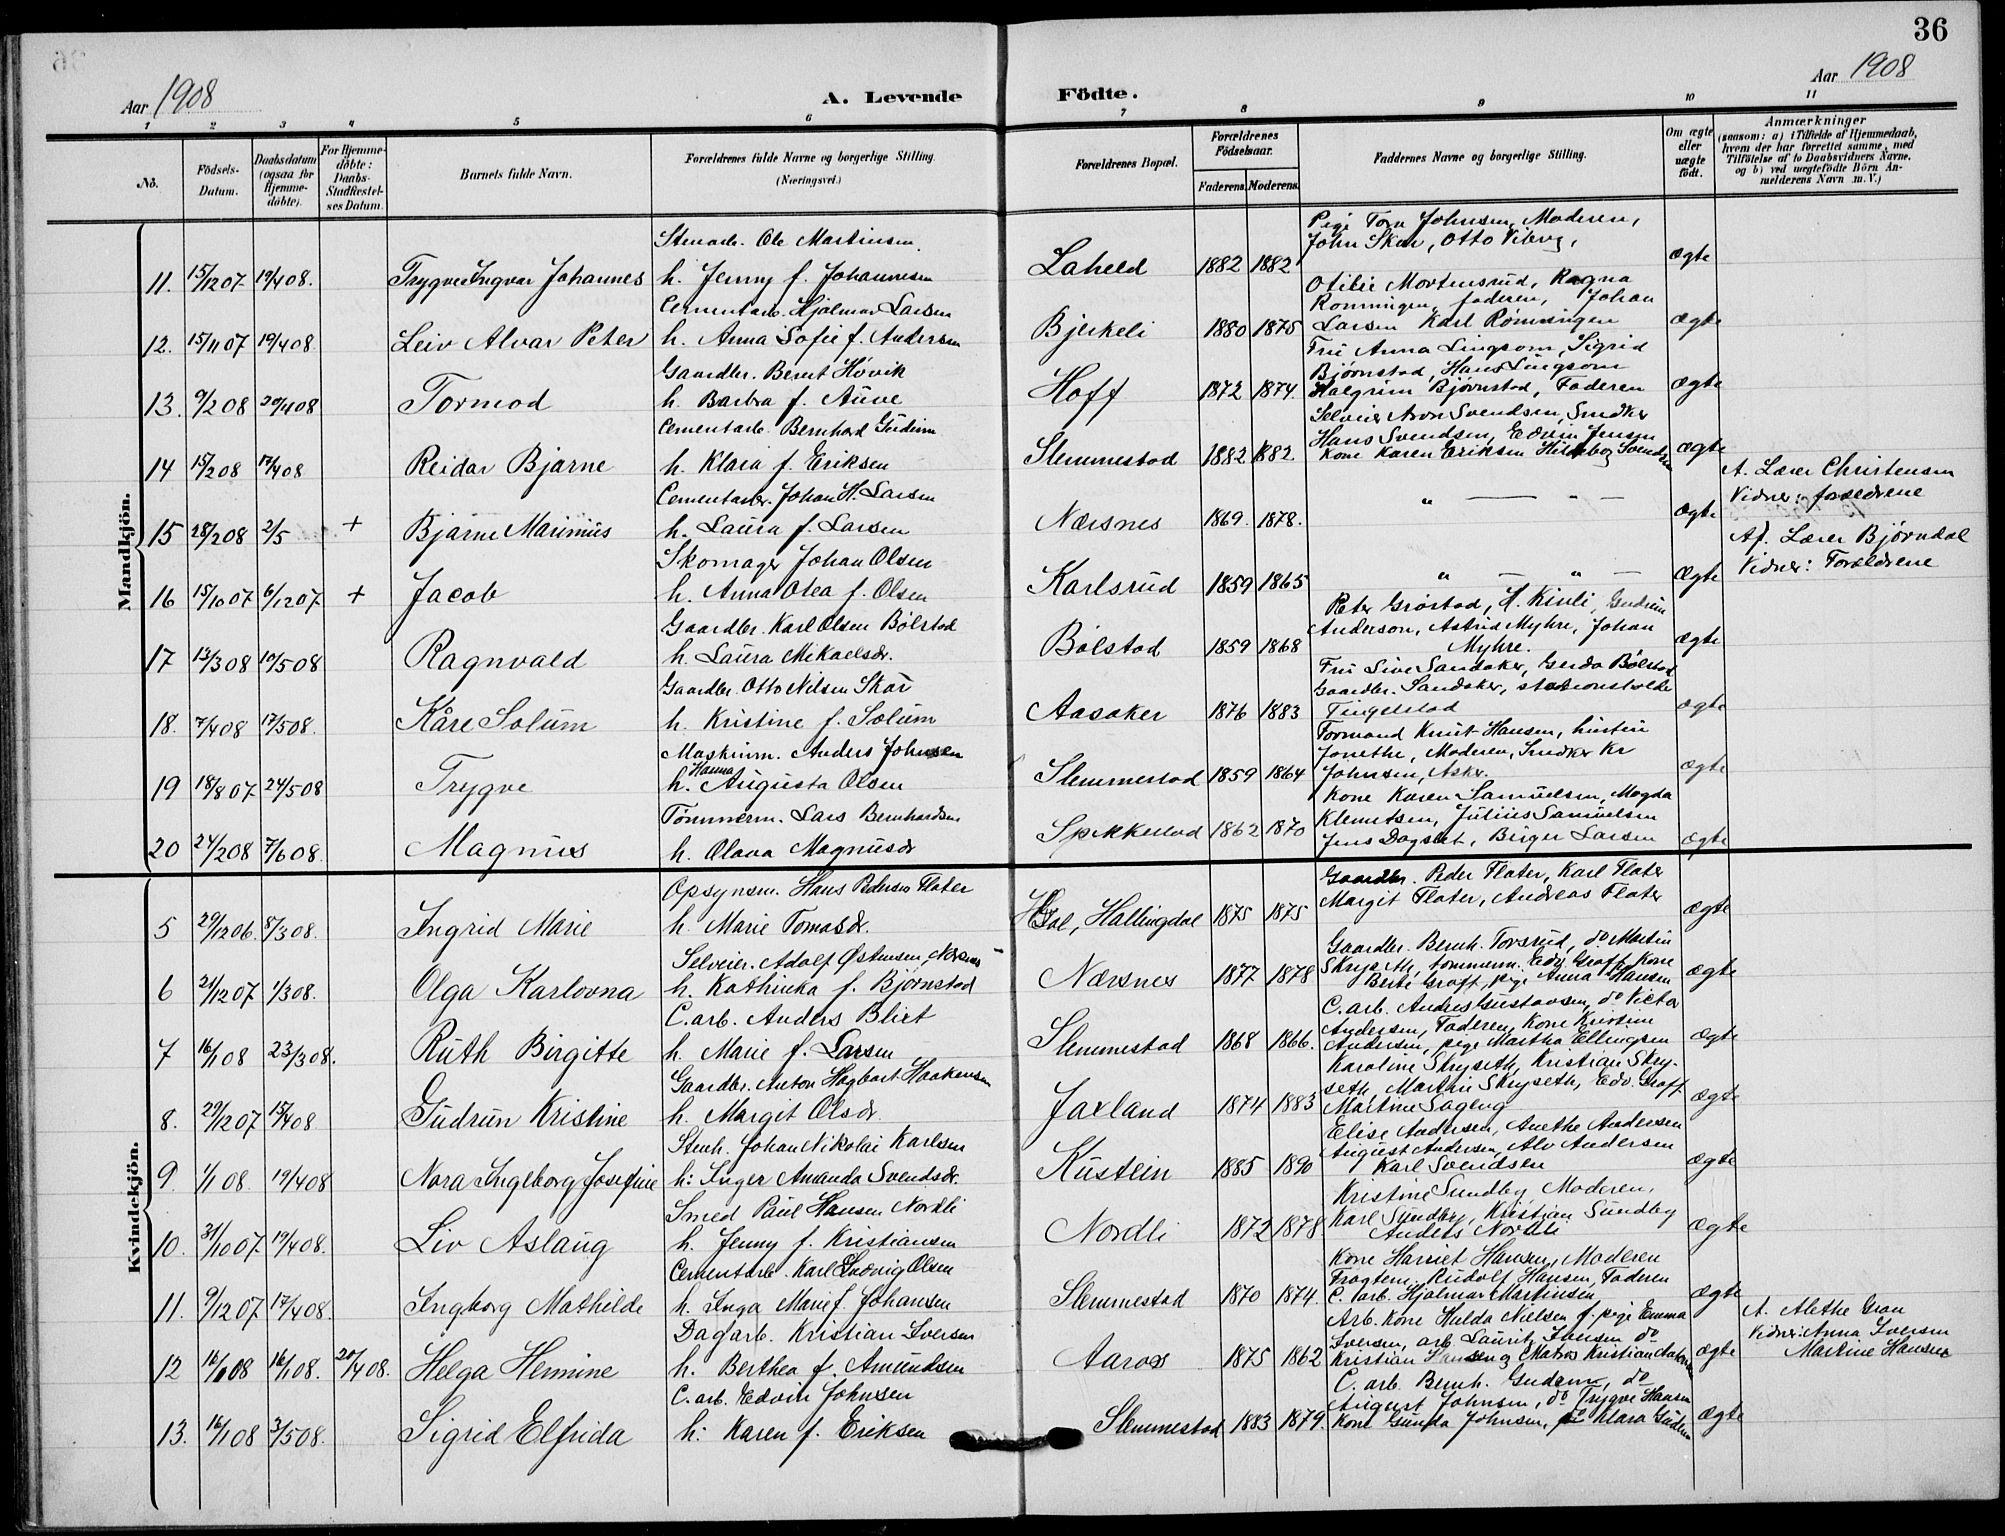 36
Aar 1908
A. Levende Födte.
Aar 1908
1 2 3 4 5 6 7 8 9 10 11
No.
Födsels-Datum.
Daabsdatum (ogsaa for Hjemme-döbte).
For Hjemme-döbte: Daabs-Stadfæstel-ses Datum.
Barnets fulde Navn.
Forældrenes fulde Navne og borgerlige Stilling. (Næringsvei.)
Forældrenes Bopæl.
Forældrenes Födselsaar.
Faderens. Moderens.
Faddernes Navne og borgerlige Stilling.
Om ægte eller uægte födt.
Anmærkninger (saasom: a) i Tilfælde af Hjemmedaab, hvem der har forrettet samme, med Tilföielse af to Daabsvidners Navne, og b) ved uægtefödte Börn An-melderens Navn m. V.)
Mandkjön.
Stenarb. Ole Martinsen
Pige Tora Johnsen, Moderen,
John Skar, Otto Viberg,
11. 15/12 07 19/4 08. Trygve Ingvar Johannes h. Jenny f. Johannesen Laheld 1882 1882 Ægte
Cementarb. Hjalmar Larsen
Otilie Mortensrud, Ragna
Ronningen, faderen, Johan
12. 15/11 07 19/4 08 Leiv Alvar Peter h. Anna Sofie f. Andersen Bjerkeli 1880 1875 Larsen Karl Rønningen Ægte
Gaardbr. Bernt Høvik
Fru Anna Lingsom, Sigrid
Bjørnstad, Hans Lingsom
13. 9/2 08 20/4 08 Tormod h. Barbra f. Auve Hoff 1872 1874 Halgrim Bjørnstad, Faderen Ægte
Cementarb. Bernhard Gudim
Selveier Aron Svendsen, Snedker
Hans Svendsen, Edvin Jensen
14 15/2 08 17/4 08 Reidar Bjarne h. Klara f. Eriksen Slemmestad 1882 1882. Kone Karen Eriksen Hildeborg Svendsen Ægte
Cementarb. Johan H. Larsen
A. Lærer Christensen
Vidner: forældrene
15 28/2 08 2/5 + Bjarne Marinius h. Laura f. Larsen Nærsnes 1869. 1878. " — " — Ægte
Skomager Johan Olsen
Af. Lærer Bjørndal
Vidner: Forældrene
16 15/10 07 6/12 07 + Jacob h. Anna Olea f. Olsen Karlsrud 1859 1865 " — " — Ægte
Gaardbr. Karl Olsen Bølstad
Peter Grøstad, H. Kinli, Gudrun
Anderson, Astrid Myhre, Johan
17 13/3 08 10/5 08 Ragnvald h. Laura Mikaelsdr. Bølstad 1859 1868 Myhre. Ægte
Gaardbr. Otto Nilsen Skar
Fru Live Sandaker, Gerda Bølstad
Gaardbr. Sandaker, stationsholder
18. 7/4 08 17/5 08. Kåre Solum h. Kristine f. Solum Aasaker 1876 1883 Tingelstad Ægte
Maskinm. Anders Johnsen
Formand Knut Hansen, hustru
Jonethe, Moderen, Snedker Kr
19 18/8 07 24/5 08 Trygve h. Hanna Augusta Olsen Slemmestad 1859 1864 Johnsen, Asker. Ægte
Tømmerm. Lars Bernhardsen
Kone Karen Samuelsen, Magda
Klemetsen, Julius Samuelsen
20 24/2 08 7/6 08. Magnus h. Olava Magnusdr Spikkestad 1862 1870 Jens Dagslet, Birger Larsen Ægte
Kvindekjön.
Opsynsm. Hans Pedersen Flater
Gaardbr. Peder Flater, Karl Flater
5 29/12 06 8/3 08. Ingrid Marie h. Marie Tomasdr. Gol, Hallingdal 1875 1875 Margit Flater, Andreas Flater Ægte
Selveier. Adolf Østensen, Nærsnes
Gaardbr. Bernh. Torsrud, do Martin
6 21/12 07 1/3 08. Olga Karlovna h. Kathinka f. Bjørnstad Nærsnes 1877 1878 Skryseth, tømmerm. Edv. Grøft, Kone Ægte
Berte Grøft, pige Anna Hansen
C. arb. Anders Blixt
C. arb. Andres Gustavsen, do Victor
Andersen, Faderen, Kone Kristine
7 16/1 08 23/3 08. Ruth Birgitte h. Marie f. Larsen Slemmestad 1868 1866. Andersen, pige Martha Ellingsen Ægte
Gaardbr. Anton Hagbart Haakensen
Karoline Skryseth, Kristian Skry-
seth, Martin Skryseth, Edv. Grøft
8. 29/12 07 15/4 08 Gudrun Kristine h. Margit Olsdr. Jaxland 1874 1883 Martine Sageng Ægte
Stenh. Johan Nikolai Karlsen
Elise Andersen, Anethe Andersen
August Andersen, Alv Andersen
9. 1/1 08. 19/4 08 Nora Ingeborg Josefine h. Inger Amanda Svendsdr. Kustein 1885 1890 Karl Svendsen Ægte
Smed Paul Hansen Nordli
Kristine Sundby, Moderen,
Karl Sundby, Kristian Sundby
10. 31/10 07. 19/4 08. Liv Aslaug h. Jenny f. Kristiansen Nordli 1872 1878. Anders Nordli Ægte
Cementarb. Karl Ludvig Olsen
Kone Harriet Hansen, Moderen
Rudolf Hansen, Faderen
11. 9/12 07 17/4 08. Ingborg Mathilde h. Inga Marie f. Johansen Slemmestad 1870 1874. C. arb. Hjalmar Martinsen Ægte
Dagarb. Kristian Iversen
Arb. Kone Hulda Nielsen f. pige Emma
Iversen, arb. Lauritz Iversen do
A. Alethe Gran
Vidner: Anna Iversen
Martine Hansen
12 16/1 08 16/1 08. 20/4 08. Helga Hermine h. Berthea f. Amundsen Aaros 1875 1862 Kristian Hansen og Matros Kristian Ægte
C. arb. Edvin Johnsen
C. arb. Bernh. Gudem, do
August Johnsen, do Trygve Hansen
13. 16/1 08 3/5 08. Sigrid Elfrida h. Karen f. Eriksen Slemmestad 1883 1879. Kone Gunda Johnsen, do Klara Gudem Ægte